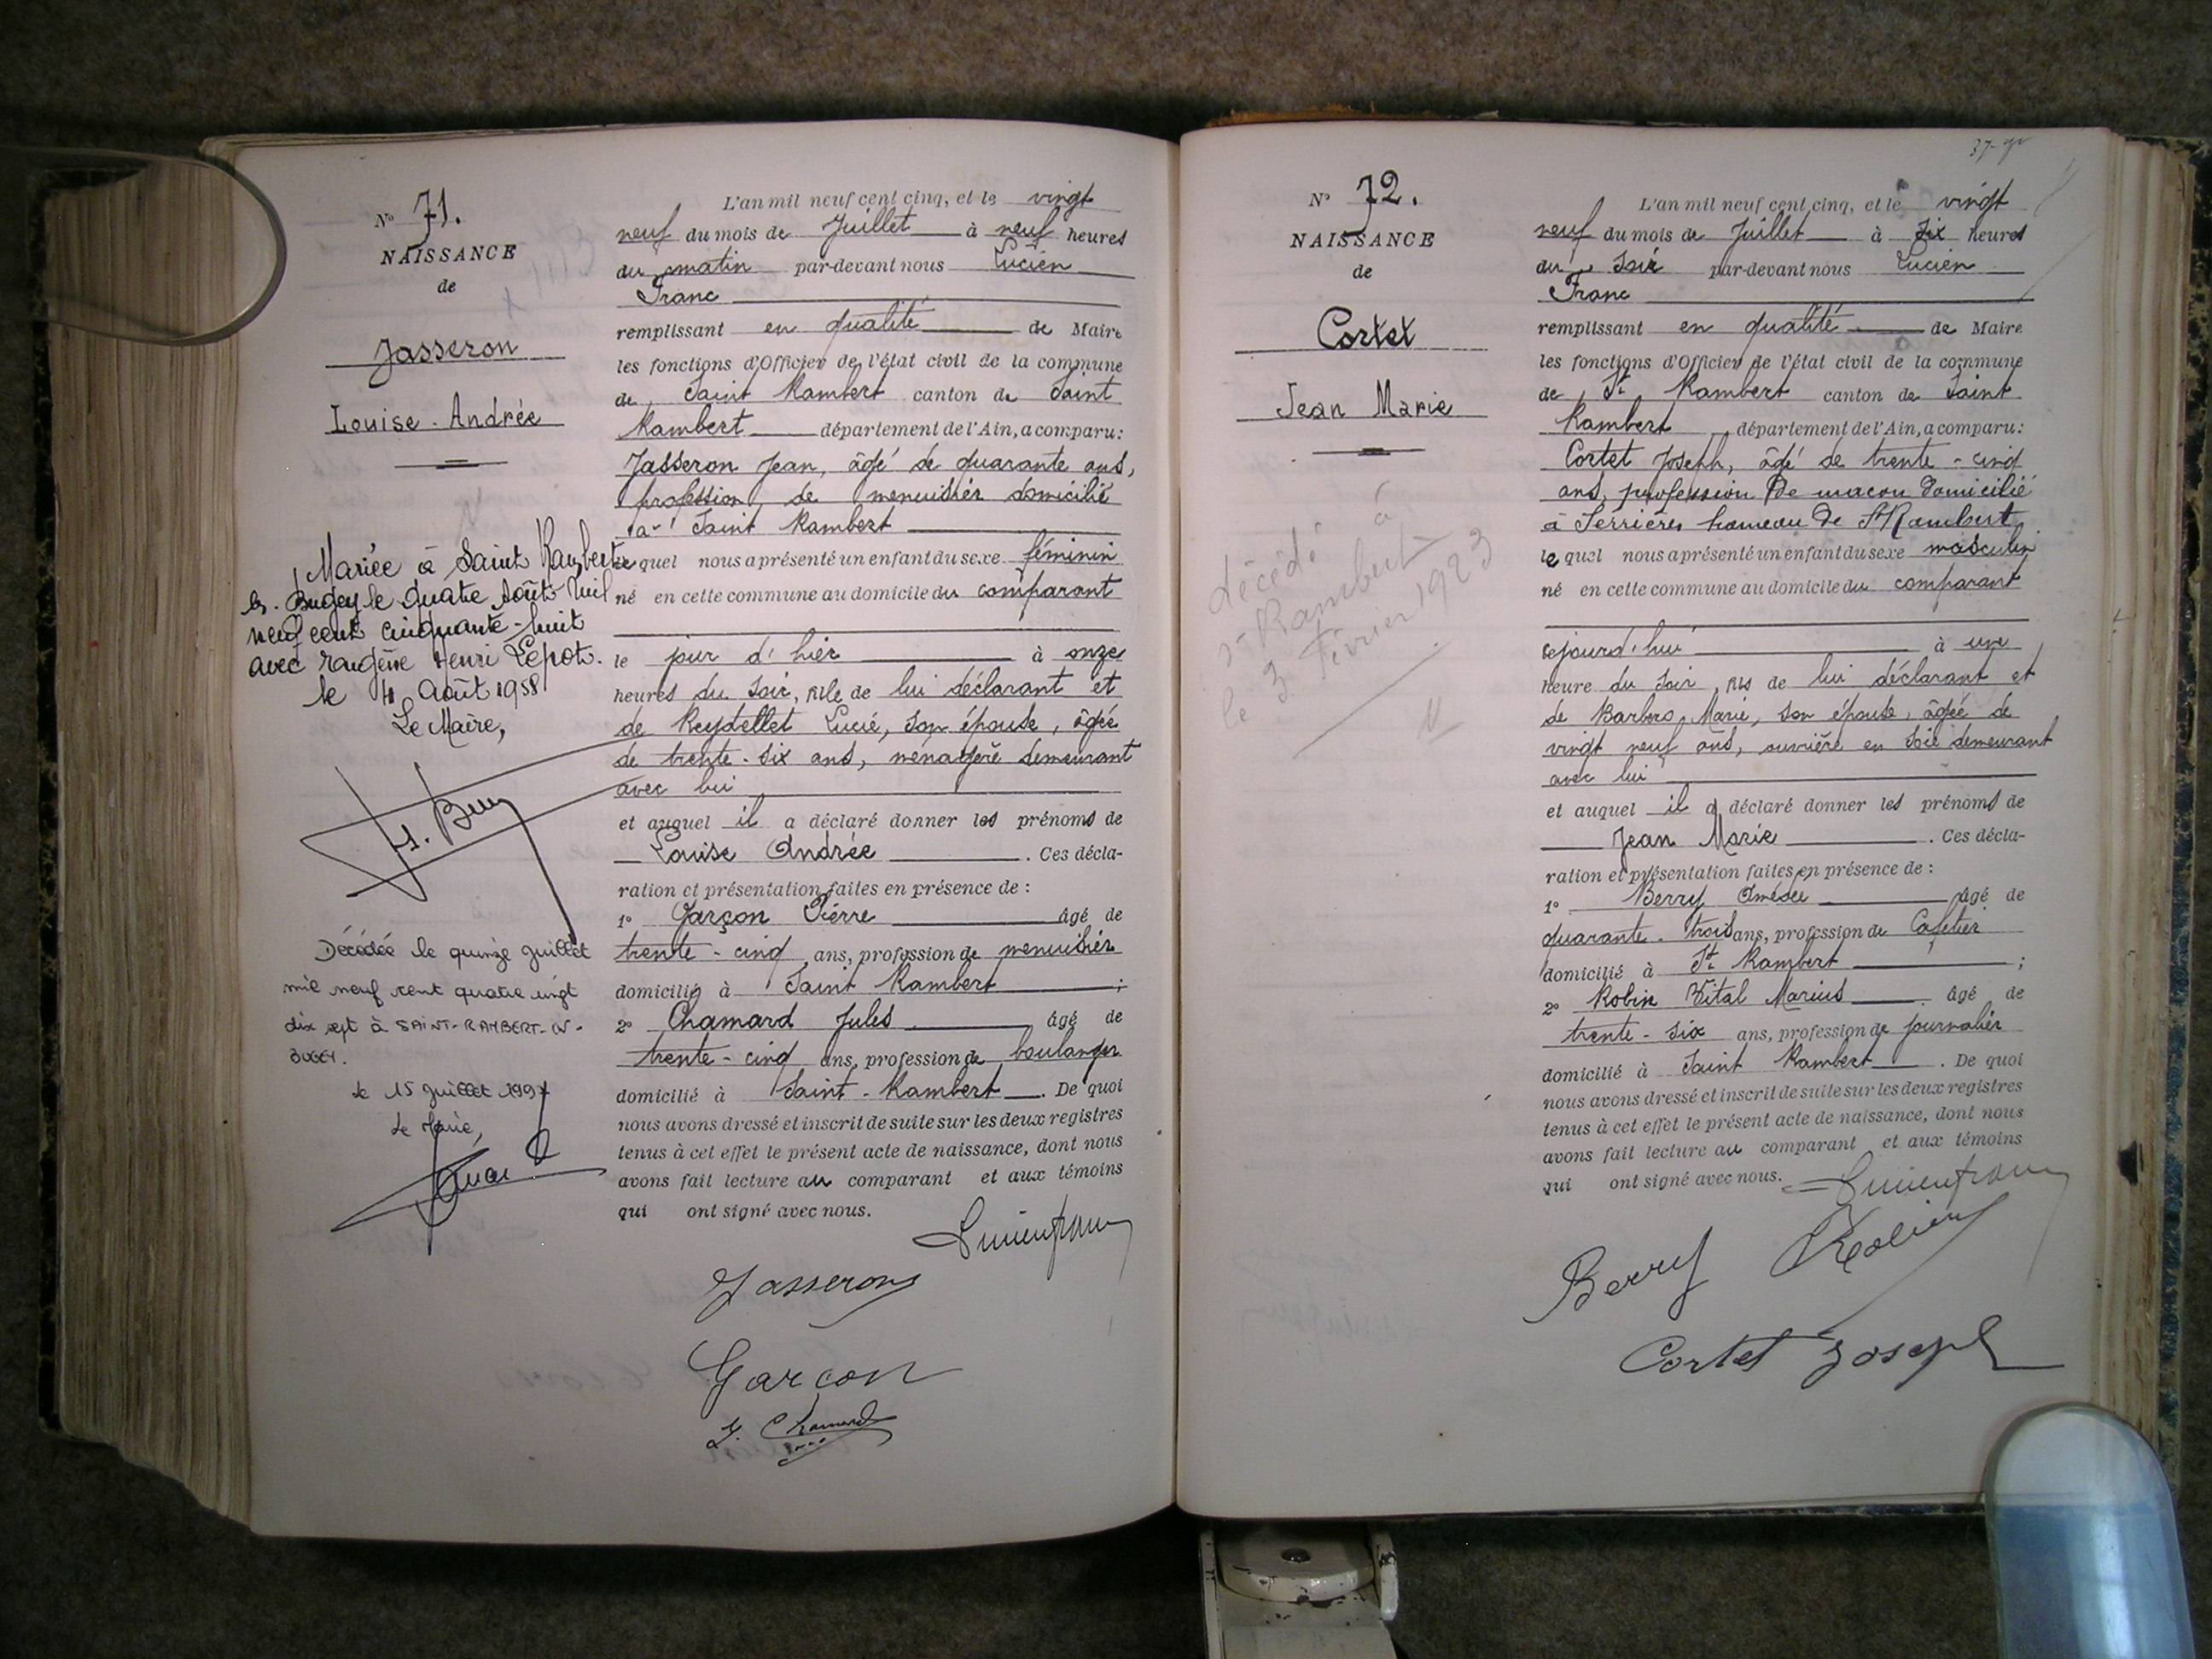 N° 71.
NAISSANCE
de
Jasseron
Louise-Andrée
Mariée à Saint Rambert
en Bugey le quatre Août Mil
neuf cent cinquante-huit
avec Henri Lépot.
le 4 Août 1958
Le Maire,
Décédée le quinze juillet
mil neuf cent quatre vingt
dix sept à SAINT-RAMBERT-EN-
BUGEY.
le 15 juillet 1997
Le Maire,
L'an mil neuf cent cinq, et le vingt
neuf du mois de Juillet à neuf heures
du matin par-devant nous Lucien
Franc
remplissant en qualité de Maire
les fonctions d'Officier de l'état civil de la commune
de Saint Rambert canton de Saint
Rambert département de l'Ain, a comparu:
Jasseron Jean, âgé de quarante ans,
profession de menuisier domicilié
à Saint Rambert
lequel nous a présenté un enfant du sexe féminin
né en cette commune au domicile du comparant
le jour d'hier à onze
heures du soir, fille de lui déclarant et
de Reydellet Lucie, son épouse, âgée
de trente-six ans, ménagère demeurant
avec lui
et auquel il a déclaré donner les prénoms de
Louise Andrée. Ces décla-
ration et présentation faites en présence de :
1° Garçon Pierre âgé de
trente-cinq ans, profession de menuisier
domicilié à Saint Rambert ;
2° Chamard Jules âgé de
trente-cinq ans, profession de boulanger
domicilié à Saint-Rambert. De quoi
nous avons dressé et inscrit de suite sur les deux registres
tenus à cet effet le présent acte de naissance, dont nous
avons fait lecture au comparant et aux témoins
qui ont signé avec nous.
Lucien Franc
Jasseron
Garçon
J. Chamard
37-
N° 72.
NAISSANCE
de
Cortet
Jean Marie
décédé à
St Rambert
le 3 Février 1923
L'an mil neuf cent cinq, et le vingt
neuf du mois de Juillet à six heures
du soir par-devant nous Lucien
Franc
remplissant en qualité de Maire
les fonctions d'Officier de l'état civil de la commune
de St Rambert canton de Saint
Rambert département de l'Ain, a comparu:
Cortet Joseph, âgé de trente-cinq
ans, profession de maçon domicilié
à Serrières hameau de St Rambert
lequel nous a présenté un enfant du sexe masculin
né en cette commune au domicile du comparant
cejourd'hui à une
heure du soir, fils de lui déclarant et
de Barbero Marie, son épouse, âgée de
vingt neuf ans, ouvrière en soie demeurant
avec lui
et auquel il a déclaré donner les prénoms de
Jean Marie. Ces décla-
ration et présentation faites en présence de :
1° Berry Amédée âgé de
quarante-trois ans, profession de Cafetier
domicilié à St Rambert ;
2° Robin Vital Marius âgé de
trente-six ans, profession de journalier
domicilié à Saint Rambert. De quoi
nous avons dressé et inscrit de suite sur les deux registres
tenus à cet effet le présent acte de naissance, dont nous
avons fait lecture au comparant et aux témoins
qui ont signé avec nous. Lucien Franc
Berry Robin
Cortet Joseph